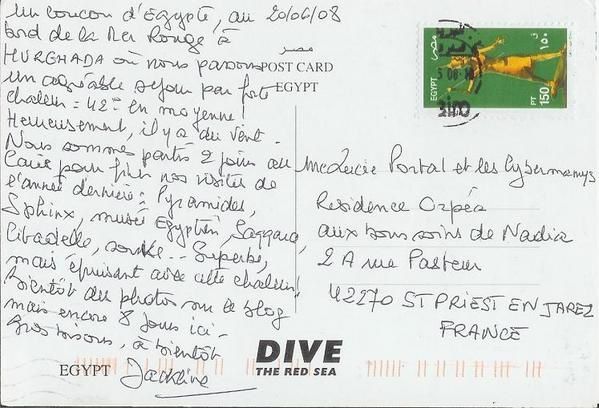 un coucou d'Egypte, au 20/06/08
bord de la Mer Rouge à
HURGHADA où nous passons
un agréable séjour par forte
chaleur = 42° en moyenne !
Heureusement, il y a du vent.
Nous sommes partis 2 jours au
Caire pour finir nos visites de
l'année dernière : Pyramides,
Sphinx, musée Egyptien, Saqqara,
Citadelle, souks... Superbe,
mais épuisant avec cette chaleur !
Bientôt des photos sur le blog
mais encore 8 jours ici -
Gros bisous, à bientôt
Jackline
مصر
POST CARD
EGYPT
مصر
١٥٠
EGYPT
PT 150
Cairo
Me Lucie Portal et les Cybermamys
Residence Orpéa
aux bons soins de Nadia
2 A rue Pasteur
42270 ST PRIEST EN JAREZ
FRANCE
DIVE
THE RED SEA
EGYPT